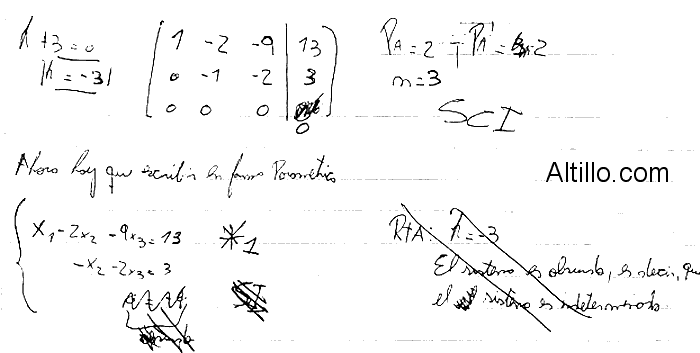 h+3=0
h = -3
1 -2 -9 | 13
0 -1 -2 | 3
0 0 0 | 0
PA=2 PA'=2
n=3
SCI
Ahora hay que escribir en forma Paramétrica
Altillo.com
x1-2x2-9x3=13 *1
-x2-2x3=3
RTA: h=-3
El sistema es absurdo, es decir, que
el sistema es indeterminado